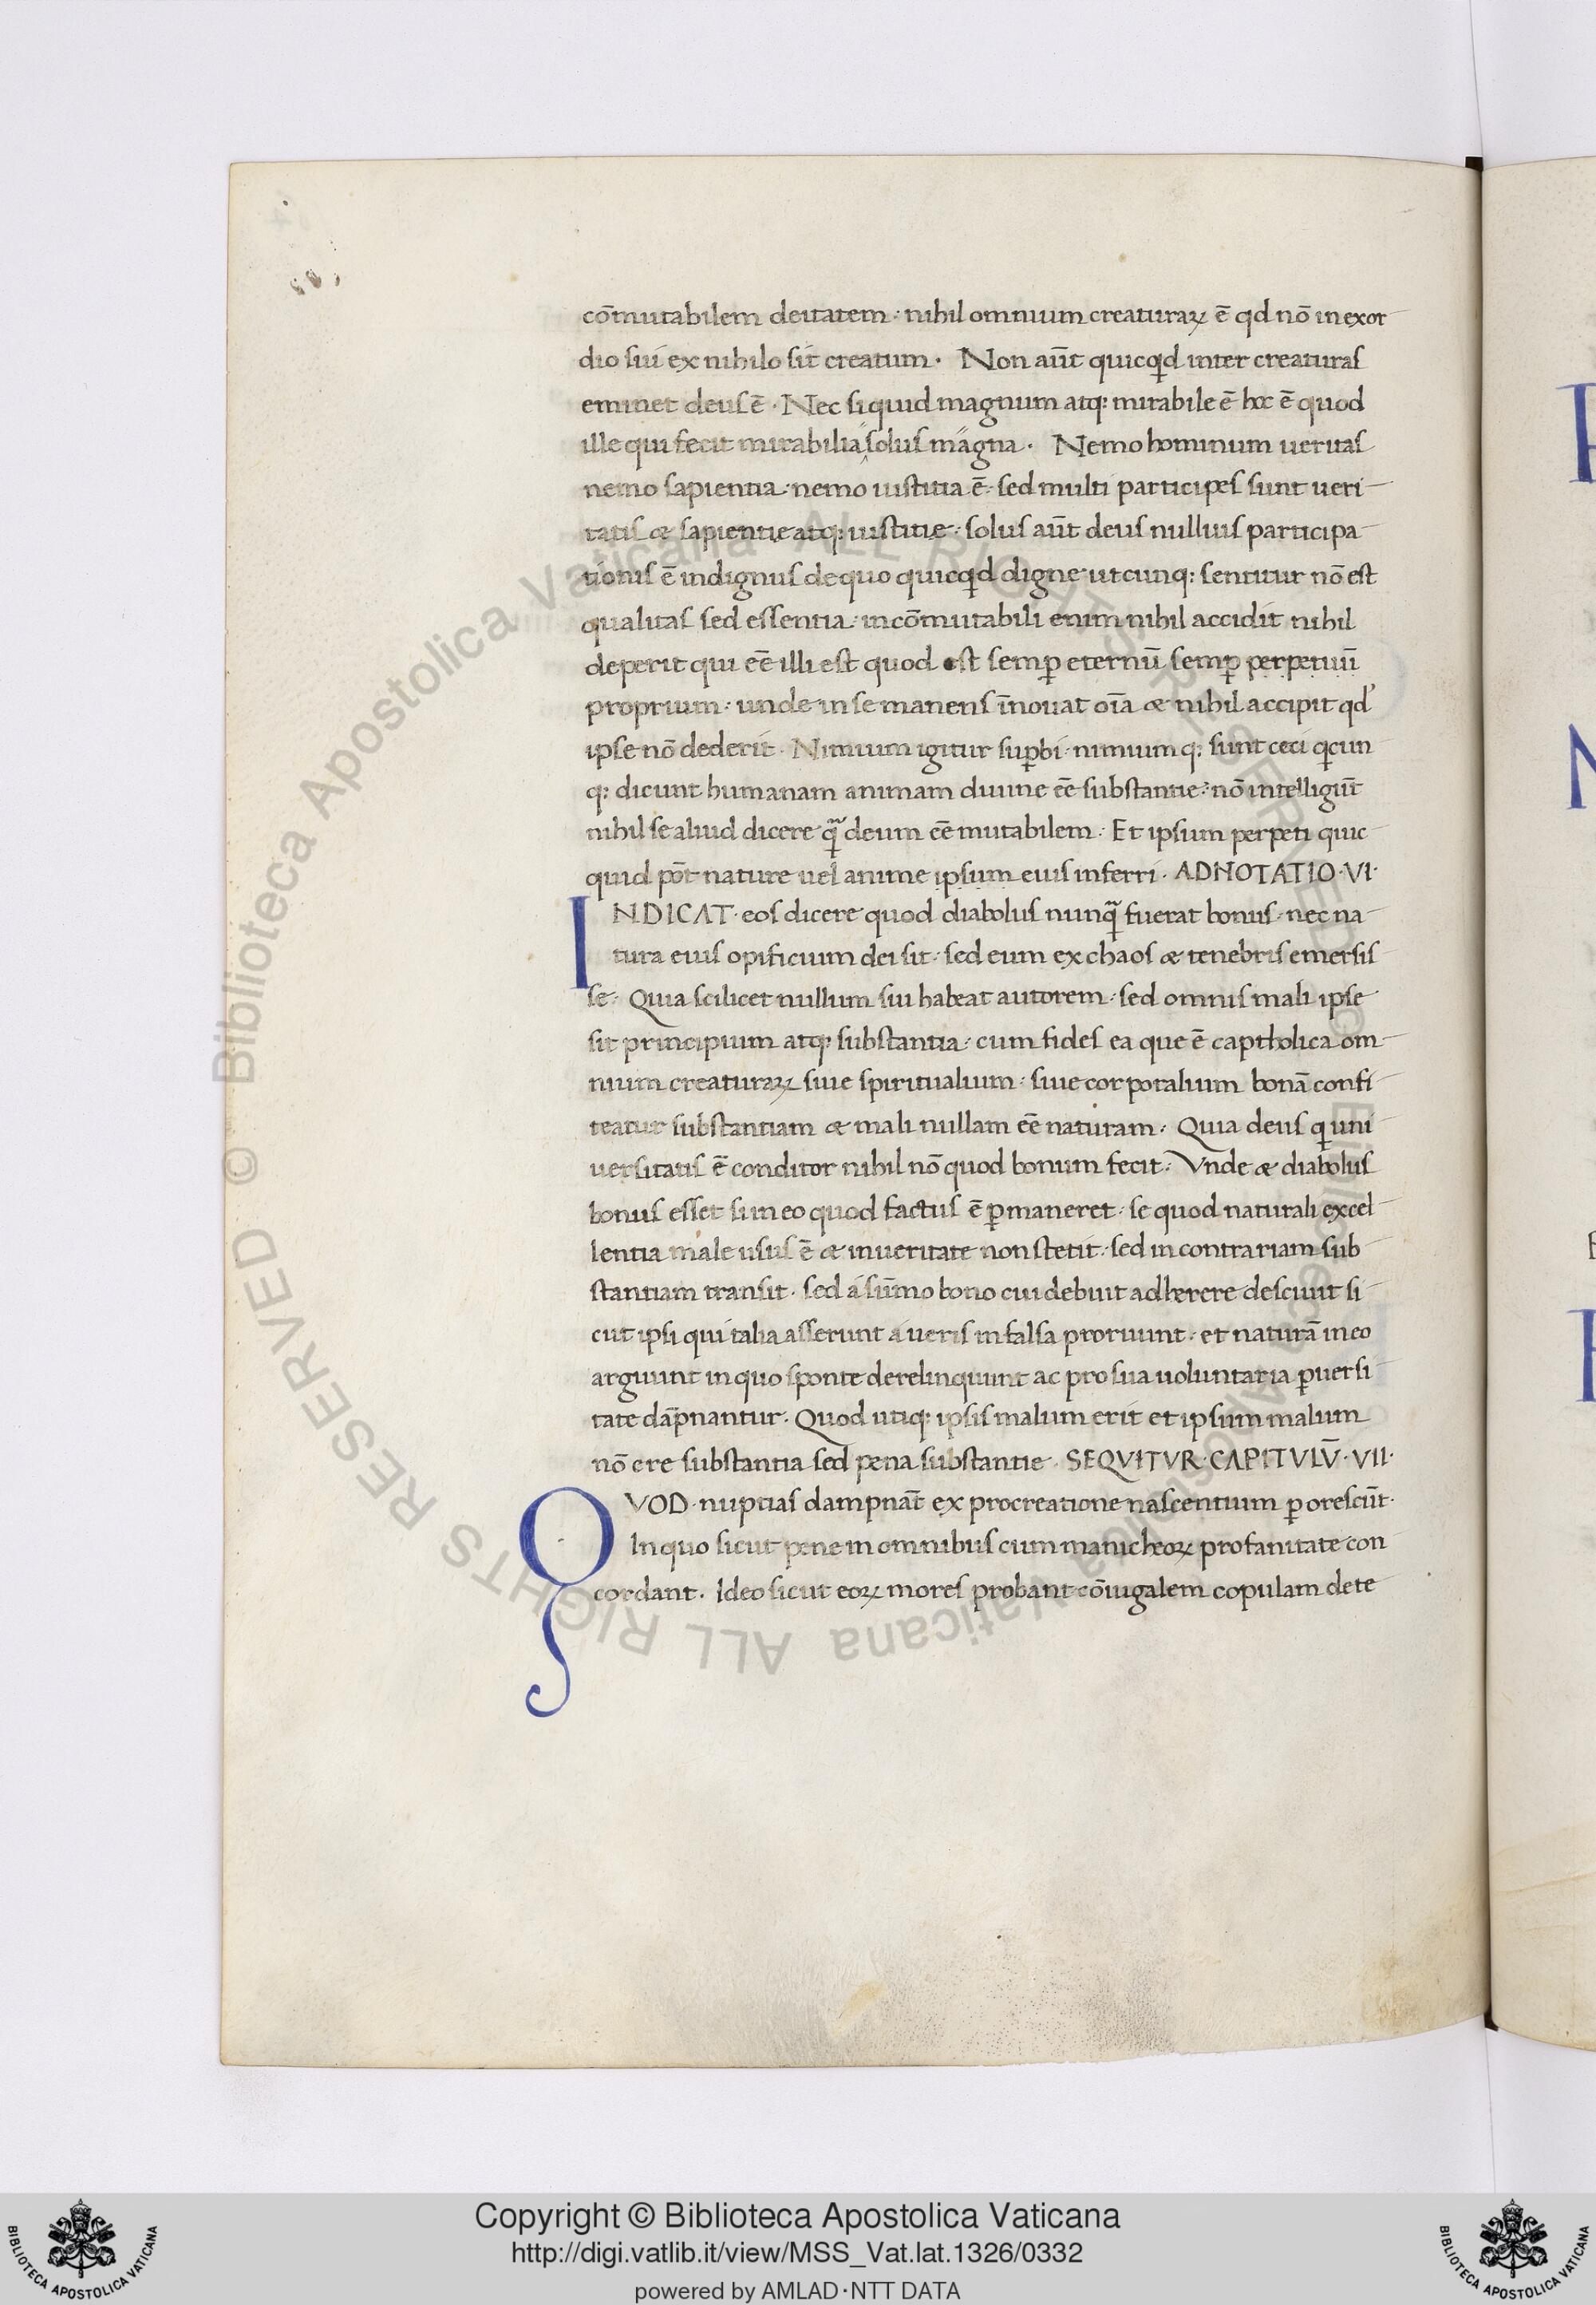 cōmutabilem deitatem · nihil omnium creaturaꝝ ē qd nō in exor
dio sui ex nihilo sit creatum · Non aūt quicqͥd inter creaturas
eminet deus ē · Nec si quid magnum atqꝫ mirabile ē hoc ē quod
ille qui fecit mirabilia solus magna · Nemo hominum ueritas
nemo sapientia · nemo iustitia ē · sed multi participes sunt ueri
tatis & sapientie atqꝫ iustitie · solus aūt deus nullius participa
tionis ē indignus de quo quicqͥd digne ut cunqꝫ sentitur nō est
qualitas sed essentia · incōmutabili enim nihil accidit nihil
deperit qui eē illi est quod est semꝑ eternū semꝑ perpetuū
proprium · unde in se manens īnouat oīa & nihil accipit qd
ipse nō dederit · Nimium igitur suꝑbi · nimium qꝫ sunt ceci qͥcun
qꝫ dicunt humanam animam diuine eē substantie · nō intelligūt
nihil se aliud dicere qᷓ deum eē mutabilem · Et ipsum perpeti quic
quid pōt nature uel anime ipsum eius inferri · ADNOTATIO · VI ·
INDICAT · eos dicere quod diabolus nunqᷓ fuerat bonus · nec na
tura eius opificium dei sit · sed eum ex chaos & tenebris emersis
se · Quia scilicet nullum sui habeat autorem · sed omnis mali ipse
sit principium atqꝫ substantia · cum fides ea que ē captholica om
nium creaturaꝝ siue spiritualium · siue corporalium bonā confi
teatur substantiam & mali nullam eē naturam · Quia deus qͥ uni
uersitatis ē conditor nihil nō quod bonum fecit · Vnde & diabolus
bonus esset si in eo quod factus ē ꝑmaneret · se quod naturali excel
lentia male usus ē & in ueritate non stetit · sed in contrariam sub
stantiam transit · sed á sūmo bono cui debuit adherere desciuit si
cut ipsi qui talia asserunt á ueris in falsa proruunt · et naturā in eo
arguunt in quo sponte derelinquunt ac pro sua uoluntaria ꝑuersi
tate dāpnantur · Quod utiqꝫ ipsis malum erit et ipsum malum
nō ere substantia sed pena substantie · SEQVITVR · CAPITVLV̄ · VII ·
QVOD · nuptias dampnāt ex procreatione nascentium ꝑ orescūt ·
In quo sicut pene in omnibus cum manicheoꝝ profanitate con
cordant · Ideo sicut eoꝝ mores probant cōiugalem copulam dete
© Biblioteca Apostolica Vaticana ALL RIGHTS RESERVED © Biblioteca Apostolica Vaticana ALL RIGHTS RESERVED
Copyright © Biblioteca Apostolica Vaticana
http://digi.vatlib.it/view/MSS_Vat.lat.1326/0332
powered by AMLAD·NTT DATA
BIBLIOTECA APOSTOLICA VATICANA
BIBLIOTECA APOSTOLICA VATICANA